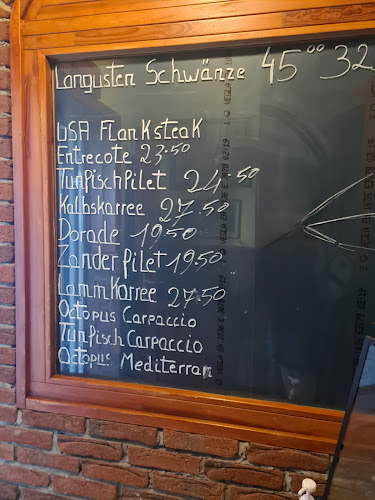 Langusten Schwänze 45⁰⁰ 32
USA Flanksteak
Entrecote 23.50
Tunfischfilet 24.50
Kalbskarree 27.50
Dorade 19.50
Zanderfilet 19.50
Lammkarree 27.50
Octopus Carpaccio
Tunfisch Carpaccio
Octopus Mediterran